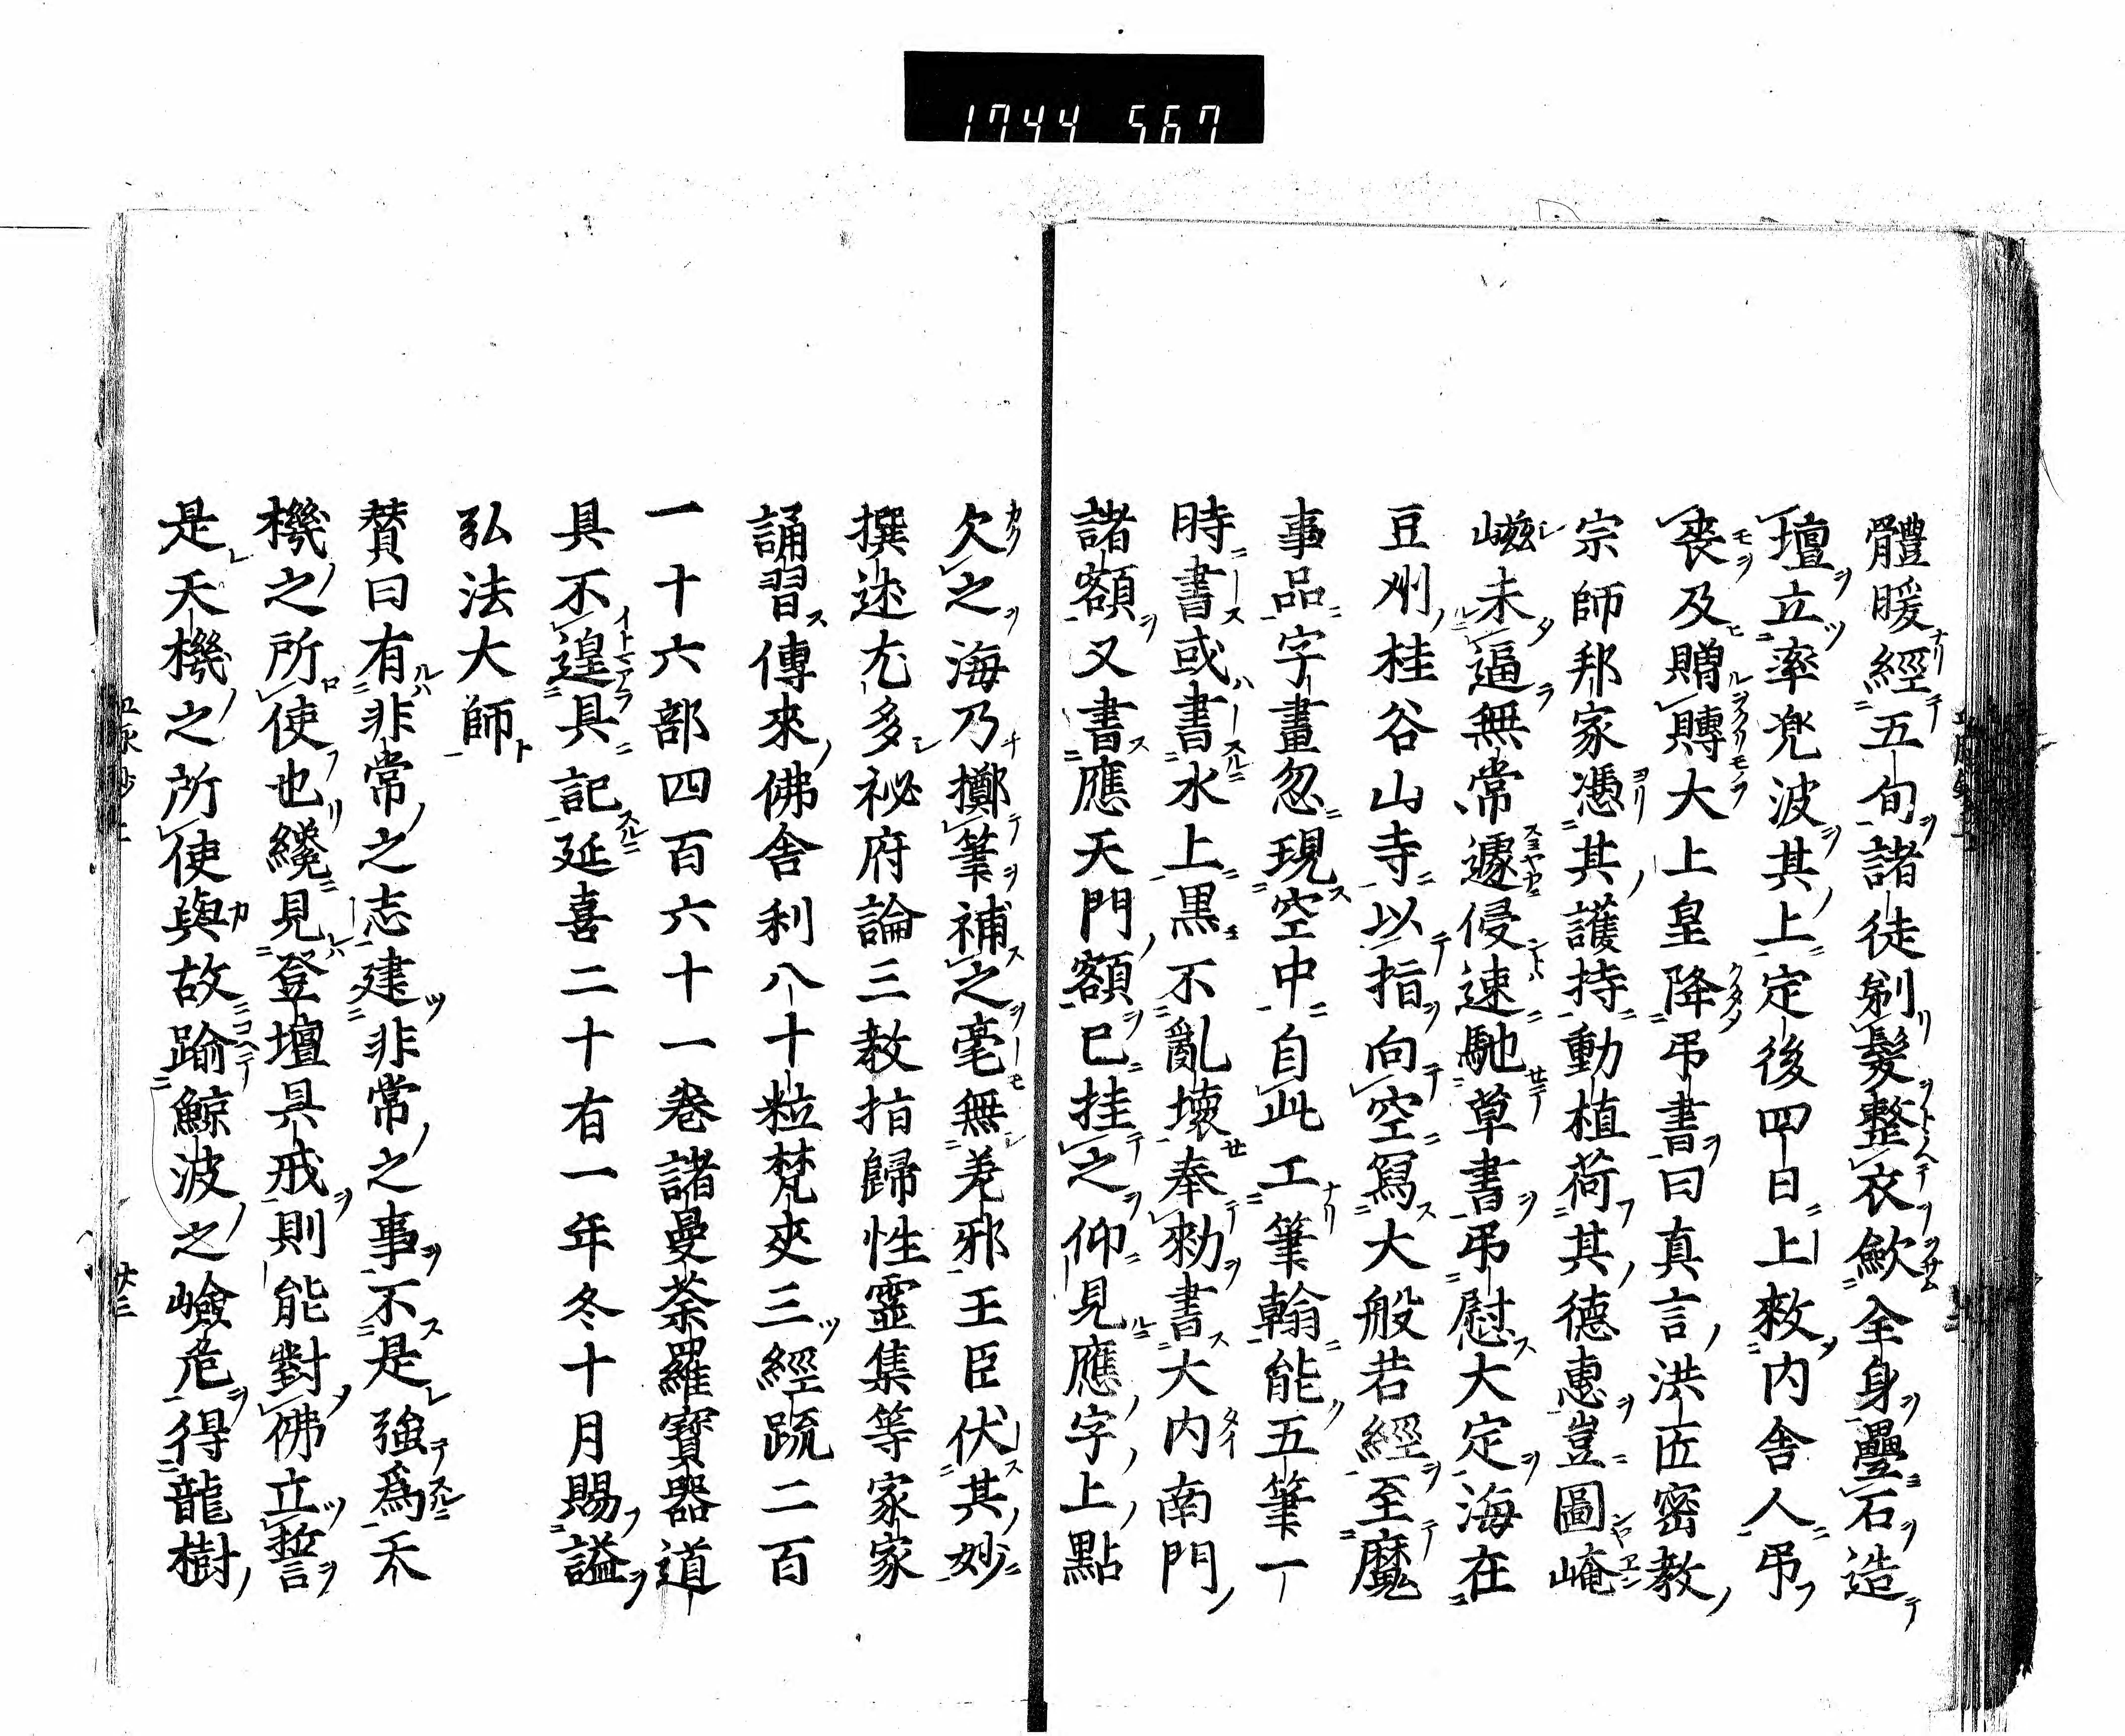 1744 567
體暖經五旬諸徒剔髮整衣歛全身疊石造
壇立率兠波其上定後四日上敕内舍人弔
喪及贈賻大上皇降弔書曰真言洪匠密教
宗師邦家憑其護持動植荷其德惠豈圖崦
嵫未逼無常遽侵速馳草書弔慰大定海在
豆刕桂谷山寺以指向空寫大般若經至魔
事品字畫忽現空中自此工筆翰能五筆一
時書或書水上黒不亂壞奉勑書大内南門
諸額又書應天門額已挂之仰見應字上點
欠之海乃擲筆補之毫無差邪王臣伏其妙
撰述尤多祕府論三教指歸性靈集等家家
誦習傳來佛舎利八十粒梵夾三經䟽二百
一十六部四百六十一巻諸曼荼羅寶器道
具不遑具記延喜二十有一年冬十月賜謚
弘法大師
賛曰有非常之志建非常之事不是強爲天
機之所使也纔見登壇具戒則能對佛立誓
是天機之所使與故踰鯨波之嶮危得龍樹